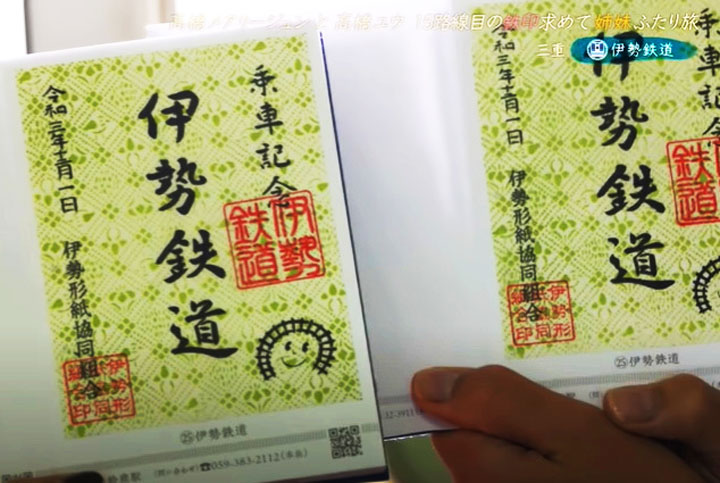 高橋メアリージュンと高橋ユウ 15路線目の鉄印求めて姉妹ふたり旅
三重 伊勢鉄道
乗車記念
伊勢鉄道
令和三年十二月一日
伊勢形紙協同組合
伊勢鉄道
伊勢形紙協同組合印
㉕伊勢鉄道
(問い合わせ)☎059-383-2112(本社)
乗車記念
伊勢鉄道
令和三年十二月一日
伊勢形紙協同組合
鉄道
㉕伊勢鉄道